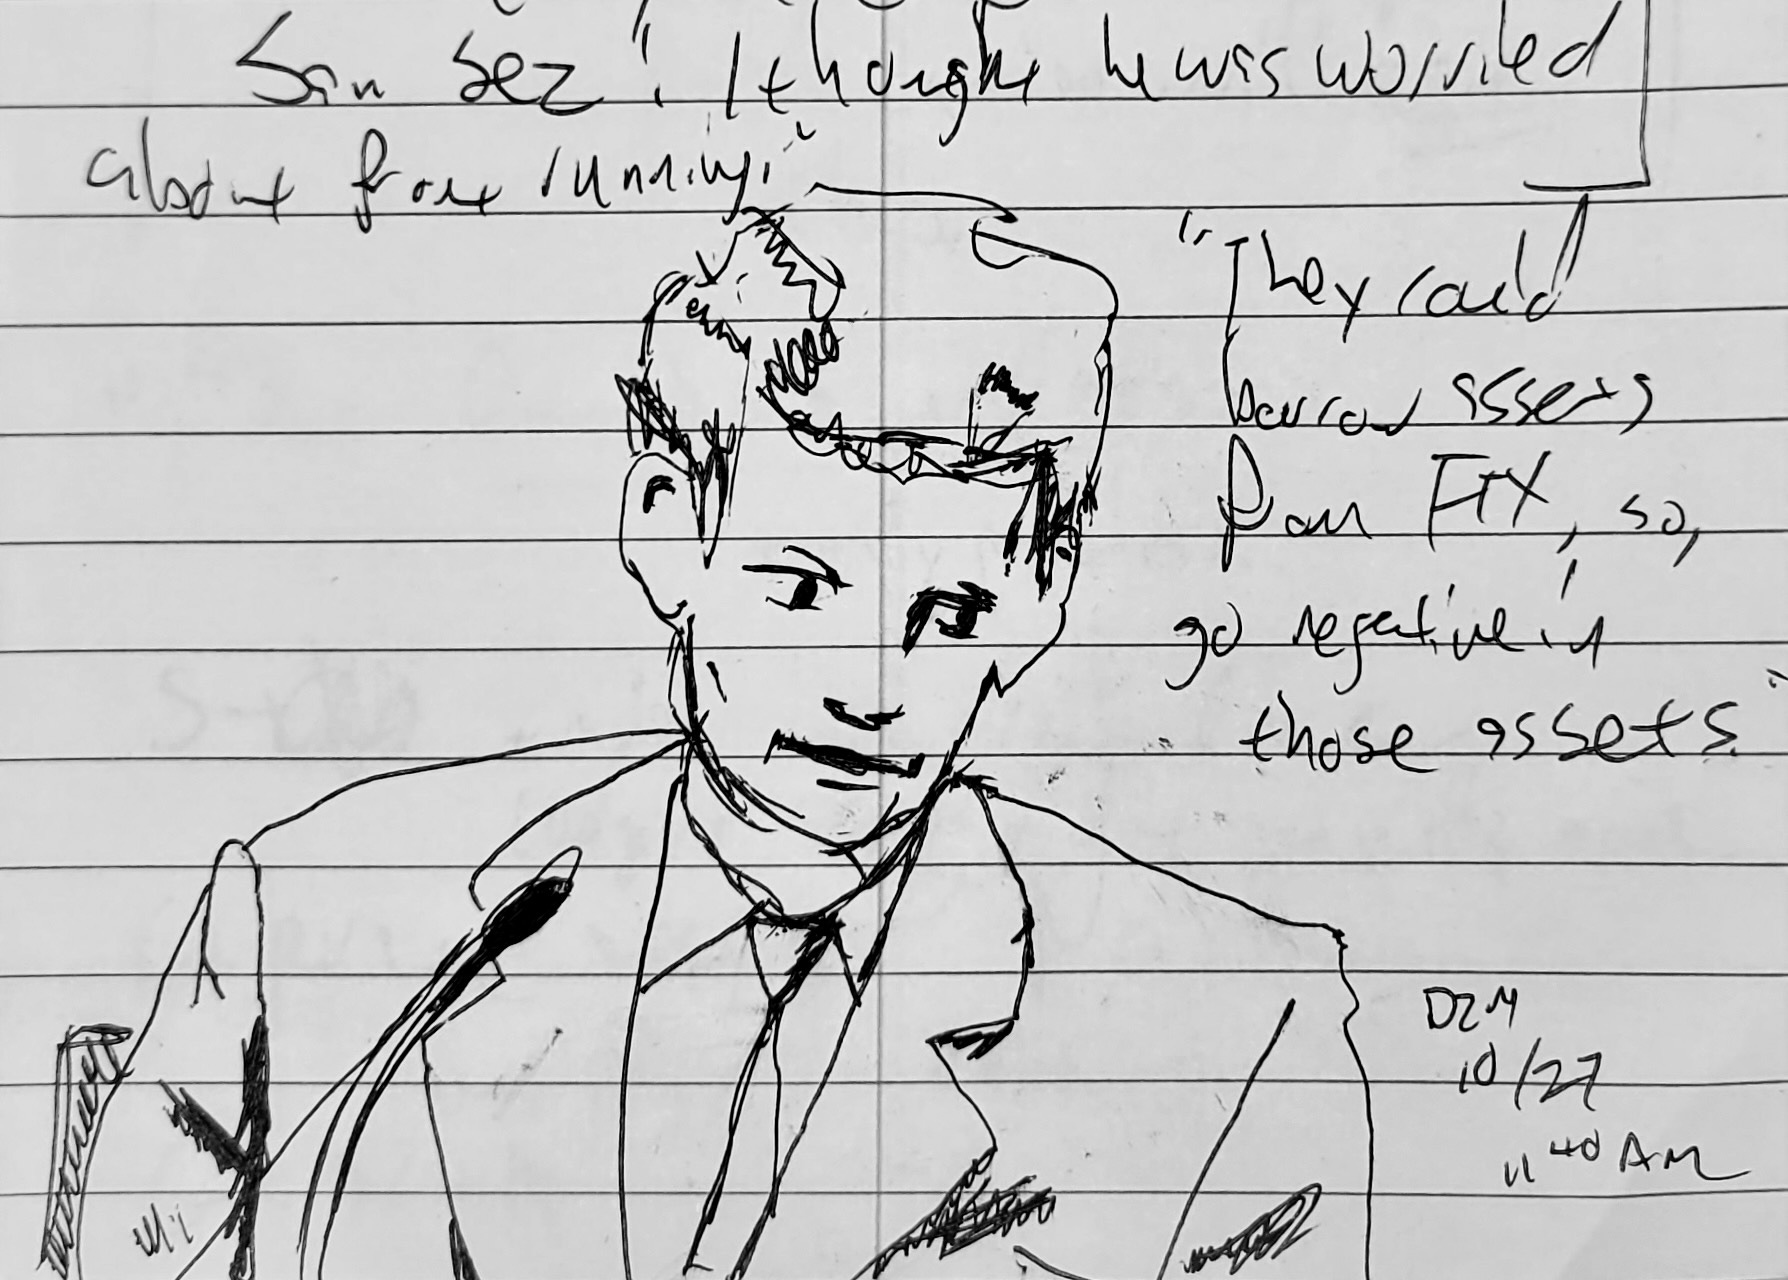 Sam sez: "I thought he was worried
about front running."
"They could
borrow assets
from FTX, so,
go negative in
those assets."
DZM
10/27
11 40 AM